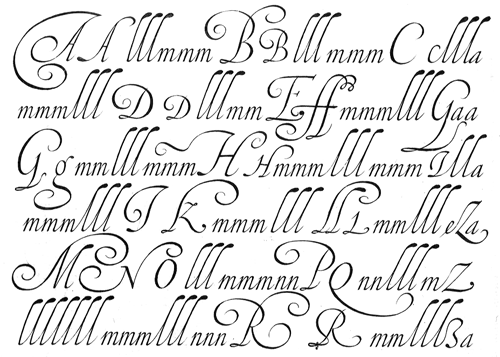 AA lllmmm B B lll mmm C cllla
mmmlll D D lllmm Eff mmmlll Gaa
Gg mmlllmmm H Hmmm lll mmm Illa
mmmlll I K mmm lll LL mmllleZa
M N O lll mmmnn P Q nnlll mZ
lllllll mmmlll nnn R R mmlll3a